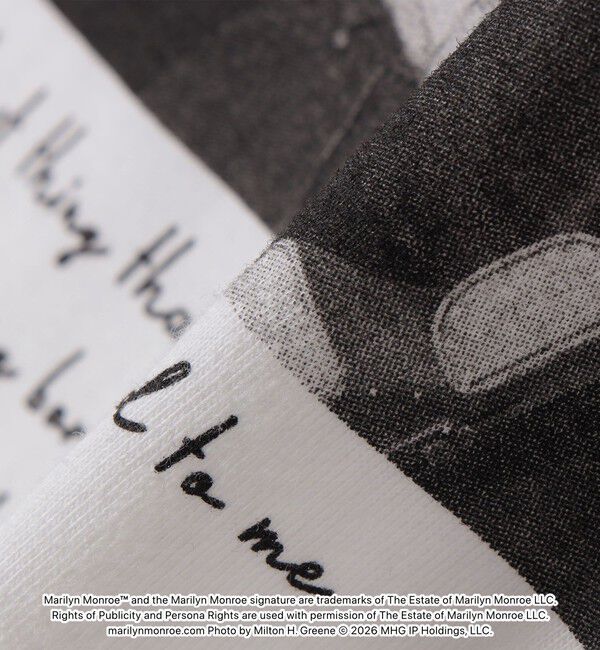 thing tha
l to me
Marilyn Monroe™ and the Marilyn Monroe signature are trademarks of The Estate of Marilyn Monroe LLC.
Rights of Publicity and Persona Rights are used with permission of The Estate of Marilyn Monroe LLC.
marilynmonroe.com Photo by Milton H. Greene © 2026 MHG IP Holdings, LLC.